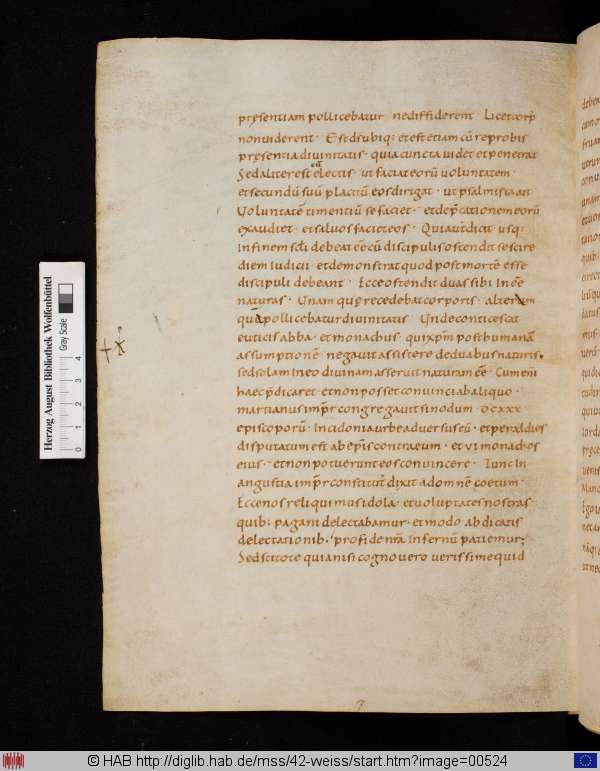 pręsentiam pollicebatur nediffiderent · Licet corp̄
non viderent · Est d̄s ubiq: et est etiam cū reprobis
pręsentia divinitatis · quia cuncta videt et penetrat
Sed aliter est cū electis · ut faciat eorū voluntatem ·
et secundū suū placitū eos dirigat · ut psalmista ait
Voluntatē timentiū se faciet · et dep̄cationem eorū
exaudiet · et salvos faciet eos · Quia aut̄ dicat usq:
in finem scł̄i debeat ēē cū discipulis ostendit se scire
diem iudicii · et demonstrat quod post mortē esse
discipuli debeant · Ecce ostendit duas sibi inēē
naturas · Unam quę recedebat corporis · alteram
quā pollicebatur divinitatis · Unde conticescat
euticis abba · et monachus qui xp̄m post humanā
assumptionē negavit assistere de duabus naturis.
sed solam in eo divinam asseruit naturam ēē · Cum eni
haec p̄dicaret · et non posset convinci ab aliquo ·
martianus imp̄r congregavit sinodum · dcxxx
episcoporū · In cidonia urbe adversus eū · et per xl dies
disputatum est ab ep̄is contra eum · et vi monachos
eius · et non potuerunt eos convincere · Tunc in
angustia imp̄r constitut̄ dixit ad omnē coetum ·
Ecce nos reliquimus idola · et voluptates nostras
quib: pagani delectabamur · et modo abdicatis
delectationib: pro fide nr̄a infernū patiemur;
Sed scitote quia nisi cognovero verissime quid
Herzog August Bibliothek Wolfenbüttel
Gray Scale
0 1 2 3 4
© HAB http://diglib.hab.de/mss/42-weiss/start.htm?image=00524